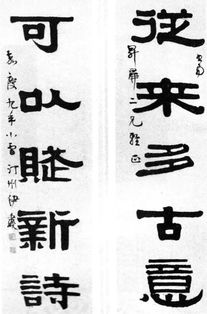 從来多古意
二兄
可以賦新詩
嘉慶九年小雪汀州伊秉綬